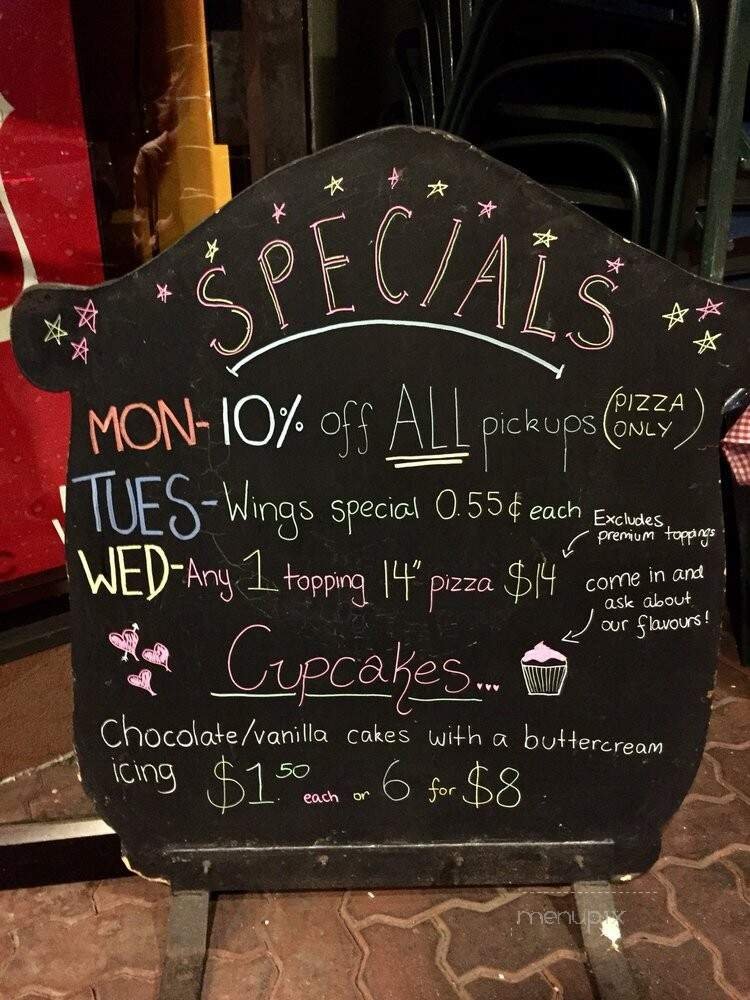 SPECIALS
MON-10% off ALL pickups (PIZZA ONLY)
TUES-Wings special 0.55¢ each
WED-Any 1 topping 14" pizza $14
Excludes
premium toppings
come in and
ask about
our flavours!
Cupcakes...
Chocolate/vanilla cakes with a buttercream
icing $1.50 each or 6 for $8
menupix